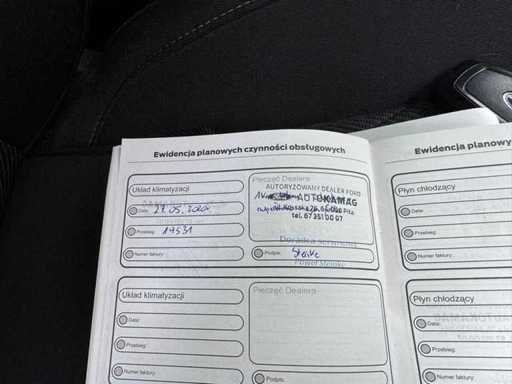 Ewidencja planowych czynności obsługowych
Ewidencja planowyc
Układ klimatyzacji
Data:
Przebieg: 19531
Numer faktury:
Pieczęć Dealera
AUTORYZOWANY DEALER FORD
AUTOKAMAG
tel. 67 351 00 07
Doradca Serwisowy
Podpis:
Płyn chłodzący
Data:
Przebieg:
Numer faktury:
Układ klimatyzacji
Data:
Przebieg:
Numer faktury:
Pieczęć Dealera
Podpis:
Płyn chłodzący
Data:
Przebieg:
Numer faktury: